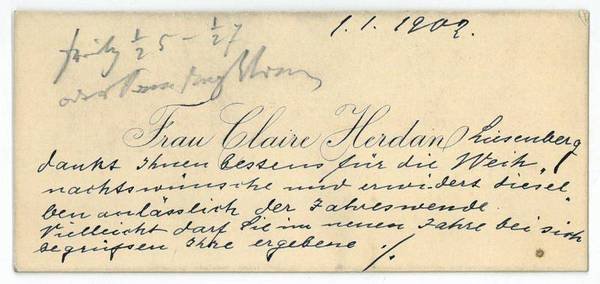 1.1.1902.
½5 – ½7
Frau Claire Herdan Liesenberg
dankt Ihnen bestens für die Weih„
nachtswünsche und erwidert diesel„
ben anlässlich der Jahreswende.
Vielleicht darf Sie im neuen Jahre bei sich
begrüfsen Ihre ergebene ./.